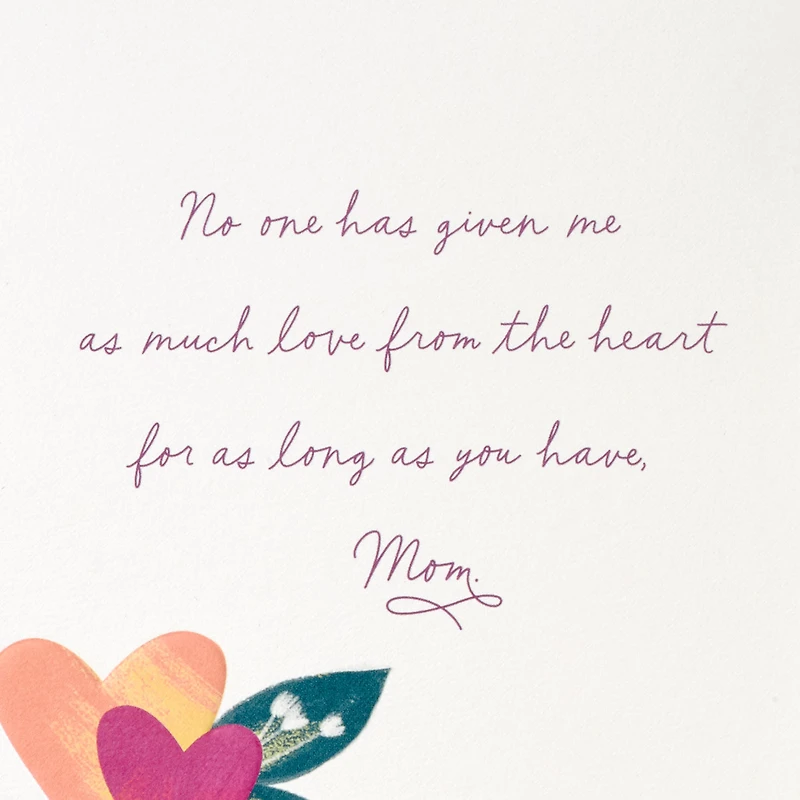 No one has given me
as much love from the heart
for as long as you have,
Mom.